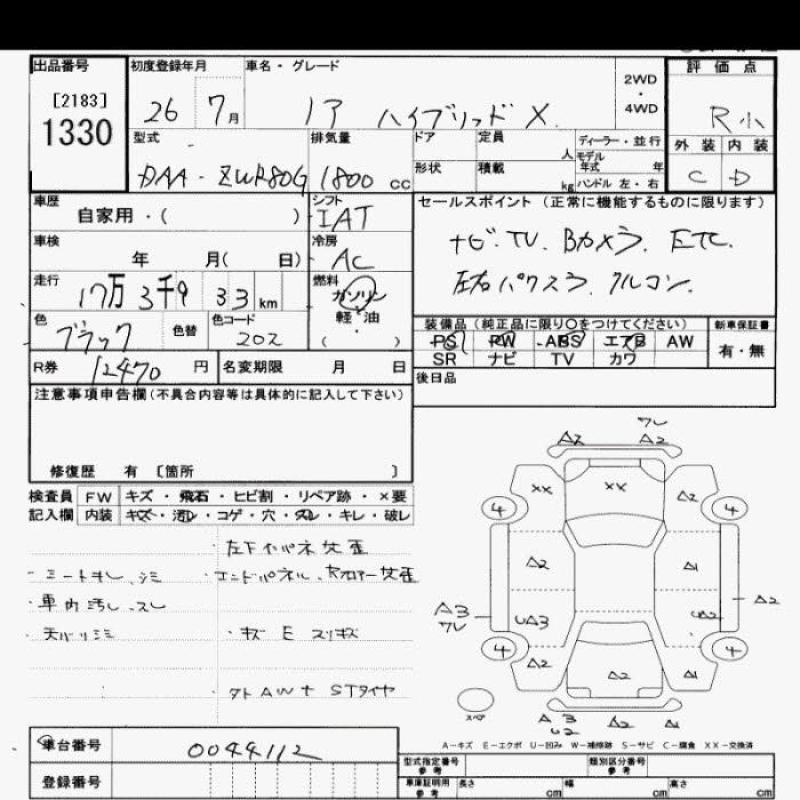 出品番号 初度登録年月 車名・グレード 評価点
[2183] 2WD
1330 26 7月 ノア ハイブリッド X ・ R小
4WD
型式 排気量 ドア 定員 ディーラー・並行 外装 内装
人 モデル年式 年
DAA-ZWR80G 1800 cc 形状 積載 kg ハンドル 左・右 C D
車歴 自家用・( ) シフト IAT セールスポイント (正常に機能するものに限ります)
車検 年 月( 日) 冷房 AC ナビ. TV. Bカメラ. ETC.
走行 17万3千9 33 km 燃料 ガソリン 左右パワスラ. クルコン.
軽・油
色 ブラック 色替 色コード 202 ( ) 装備品 (純正品に限り○をつけてください) 新車保証書
PS PW ABS エアB AW 有・無
SR ナビ TV カワ
R券 12470 円 名変期限 月 日 後日品
注意事項申告欄(不具合内容等は具体的に記入して下さい)
修復歴 有 〔箇所 〕
検査員 FW キズ・飛石・ヒビ割・リペア跡・×要
記入欄 内装 キズ・汚レ・コゲ・穴・スレ・キレ・破レ
左下インパネ交歪
シートキレ、シミ ・エンドパネル、Rフロアー交歪
・車内汚レ スレ
・天バリシミ ・キズ E スリキズ
タト AW+ STタイヤ
A2 ワレ A2
XX XX A2
4 4
A2 A1
A3 ワレ UA3 UA2 A2
4 4
A2 A2 A1
スペア A3 U2 A2 A1
A-キズ E-エクボ U-凹み W-補修跡 S-サビ C-腐食 XX-交換済
車台番号 0044112
型式指定番号 参考 類別区分番号 参考
登録番号
車庫証明用 参考 長さ cm 幅 cm 高さ cm